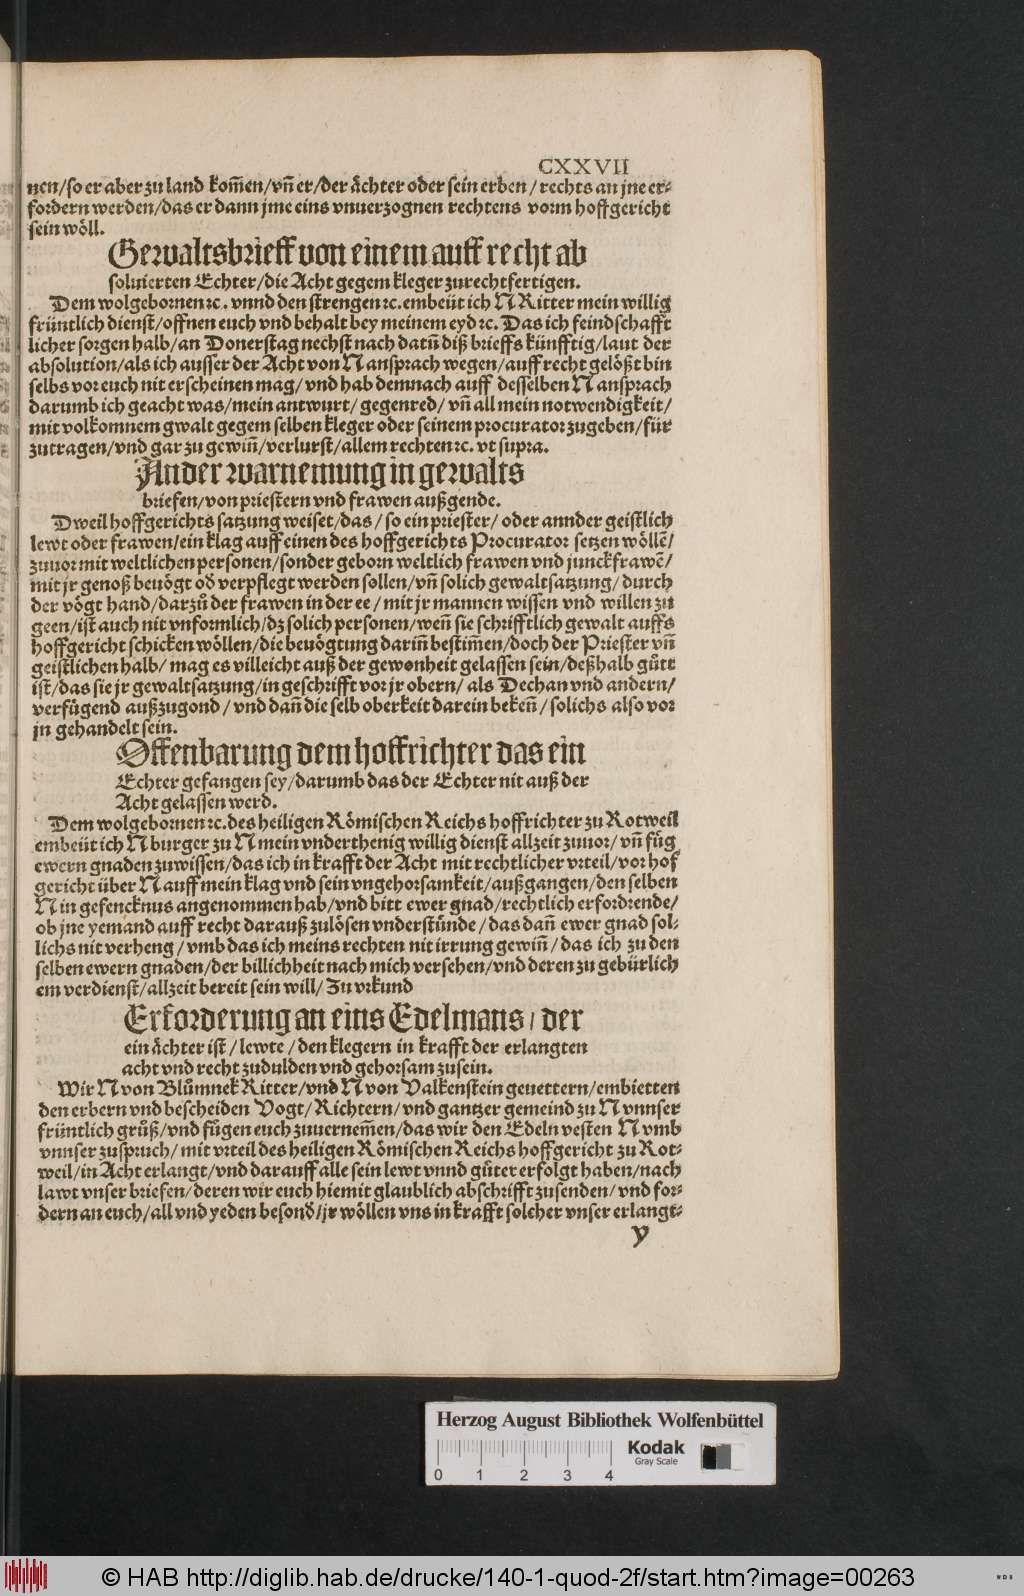 CXXVII
nen/so er aber zu land kom̃en/vñ er/der ächter oder sein erben/rechts an jne er⸗
fordern werden/das er dann jme eins vnuerzognen rechtens vorm hoffgericht
sein wöll.
Gewaltsbrieff von einem auff recht ab
soluierten Echter/die Acht gegem kleger zurechtfertigen.
Dem wolgebornen ꝛc. vnnd den strengen ꝛc. embeüt ich N Ritter mein willig
früntlich dienst/offnen euch vnd behalt bey meinem eyd ꝛc. Das ich feindschafft
licher sorgen halb/an Donerstag nechst nach datũ diß brieffs künfftig/laut der
absolution/als ich ausser der Acht von N ansprach wegen/auff recht gelößt bin
selbs vor euch nit erscheinen mag/vnd hab demnach auff desselben N ansprach
darumb ich geacht was/mein antwurt/gegenred/vñ all mein notwendigkeit/
mit volkomnem gwalt gegem selben kleger oder seinem procurator zugeben/für
zutragen/vnd gar zu gewiñ/verlurst/allem rechten ꝛc. vt supra.
Ander warnemung in gewalts
briefen/von priestern vnd frawen außgende.
Dweil hoffgerichts satzung weiset/das/so ein priester/oder annder geistlich
lewt oder frawen/ein klag auff einen des hoffgerichts Procurator setzen wöllẽ/
zuuor mit weltlichen personen/sonder geborn weltlich frawen vnd junckfrawẽ/
mit jr genoß beuögt oď verpflegt werden sollen/vñ solich gewaltsatzung/durch
der vögt hand/darzů der frawen in der ee/mit jr mannen wissen vnd willen zu
geen/ist auch nit vnformlich/dz solich personen/weñ sie schrifftlich gewalt auffs
hoffgericht schicken wöllen/die beuögtung dariñ bestim̃en/doch der Priester vñ
geistlichen halb/mag es villeicht auß der gewonheit gelassen sein/deßhalb gůtt
ist/das sie jr gewaltsatzung/in geschrifft vor jr obern/als Dechan vnd andern/
verfügend außzugond/vnd dañ die selb oberkeit darein bekeñ/solichs also vor
jn gehandelt sein.
Offenbarung dem hoffrichter das ein
Echter gefangen sey/darumb das der Echter nit auß der
Acht gelassen werd.
Dem wolgebornen ꝛc. des heiligen Römischen Reichs hoffrichter zu Rotweil
embeüt ich N burger zu N mein vnderthenig willig dienst allzeit zuuor/vñ füg
ewern gnaden zuwissen/das ich in krafft der Acht mit rechtlicher vrteil/vor hof
gericht über N auff mein klag vnd sein vngehorsamkeit/außgangen/den selben
N in gefencknus angenommen hab/vnd bitt ewer gnad/rechtlich erfordrende/
ob jne yemand auff recht darauß zulösen vnderstünde/das dañ ewer gnad sol⸗
lichs nit verheng/vmb das ich meins rechten nit irrung gewiñ/das ich zu den
selben ewern gnaden/der billichheit nach mich versehen/vnd deren zu gebürlich
em verdienst/allzeit bereit sein will/Zu vrkund
Erforderung an eins Edelmans/der
ein ächter ist/lewte/den klegern in krafft der erlangten
acht vnd recht zudulden vnd gehorsam zusein.
Wir N von Blůmnek Ritter/vnd N von Valkenstein geuettern/embietten
den erbern vnd bescheiden Vogt/Richtern/vnd gantzer gemeind zu N vnnser
früntlich grůß/vnd fügen euch zuuernem̃en/das wir den Edeln vesten N vmb
vnnser zuspruch/mit vrteil des heiligen Römischen Reichs hoffgericht zu Rot⸗
weil/in Acht erlangt/vnd darauff alle sein lewt vnnd gůter erfolgt haben/nach
lawt vnser briefen/deren wir euch hiemit glaublich abschrifft zusenden/vnd for⸗
dern an euch/all vnd yeden besonď/jr wöllen vns in krafft solcher vnser erlangt⸗
y
Herzog August Bibliothek Wolfenbüttel
0 1 2 3 4
Kodak
Gray Scale
© HAB http://diglib.hab.de/drucke/140-1-quod-2f/start.htm?image=00263